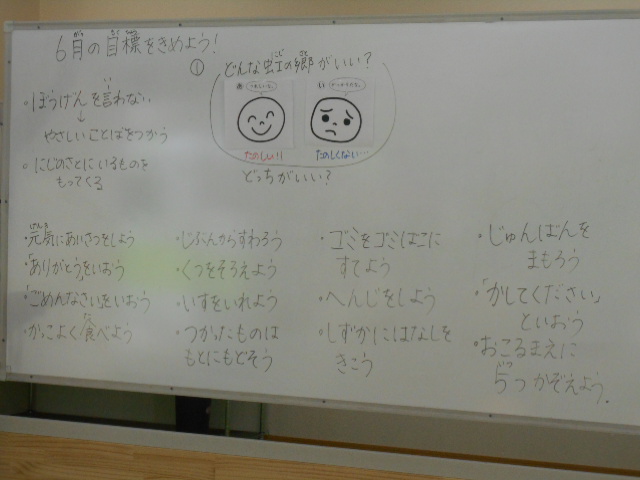 6月の目標をきめよう!
① どんな虹の郷がいい?
にじ
たのしい!!
たのしくない…
どっちがいい?
・ぼうげんを言わない
↓
やさしいことばをつかう
・にじのさとにいるものを
もってくる
・元気にあいさつをしよう
・「ありがとう」をいおう
・「ごめんなさい」をいおう
・かっこよく食べよう
・じぶんからすわろう
・くつをそろえよう
・いすをいれよう
・つかったものは
もとにもどそう
・ゴミをゴミばこに
すてよう
・へんじをしよう
・しずかにはなしを
きこう
・じゅんばんを
まもろう
・「かしてください」
といおう
・おこるまえに
5つかぞえよう.